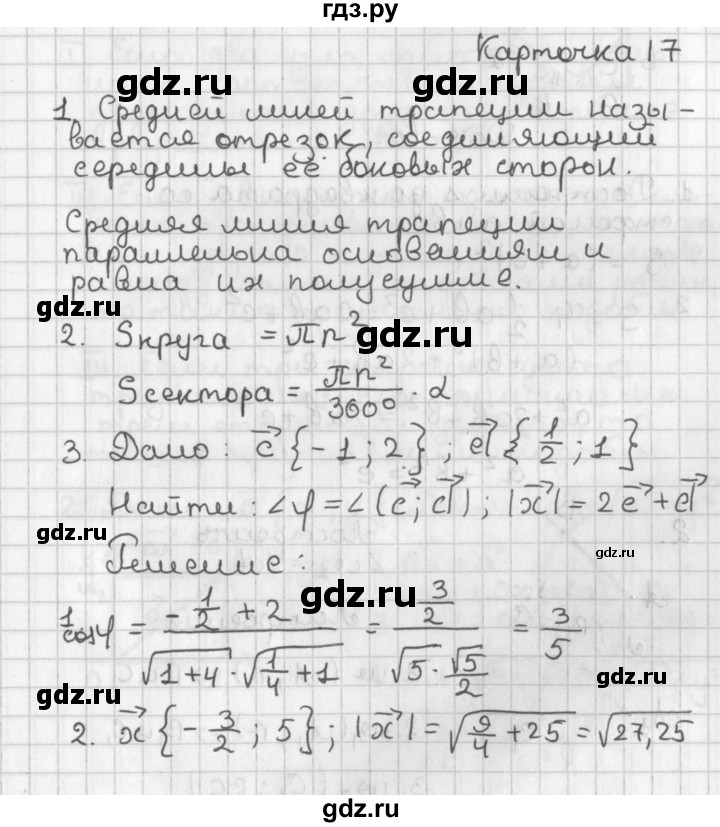 гдз.ру
Карточка 17
gdz.ru gdz.ru
1. Средней линей трапеции назы-
вается отрезок, соединяющий
середины её боковых сторон.
Средняя линия трапеции
параллельна основаниям и
равна их полусумме.
gdz.ru
2. Sкруга = πr²
gdz.ru
Sсектора = πr²/360° · α
3. Дано: c⃗ {-1; 2}; d⃗ {1/2; 1}
Найти: ∠φ = ∠(c⃗; d⃗); |x⃗| = 2c⃗ + d⃗
gdz.ru gdz.ru
Решение:
gdz.ru
1. cosφ = (-1/2 + 2)/(√(1+4) · √(1/4+1)) = (3/2)/(√5 · √5/2) = 3/5
gdz.ru
gdz.ru
2. x⃗ {-3/2; 5}; |x⃗| = √(9/4 + 25) = √27,25
gdz.ru